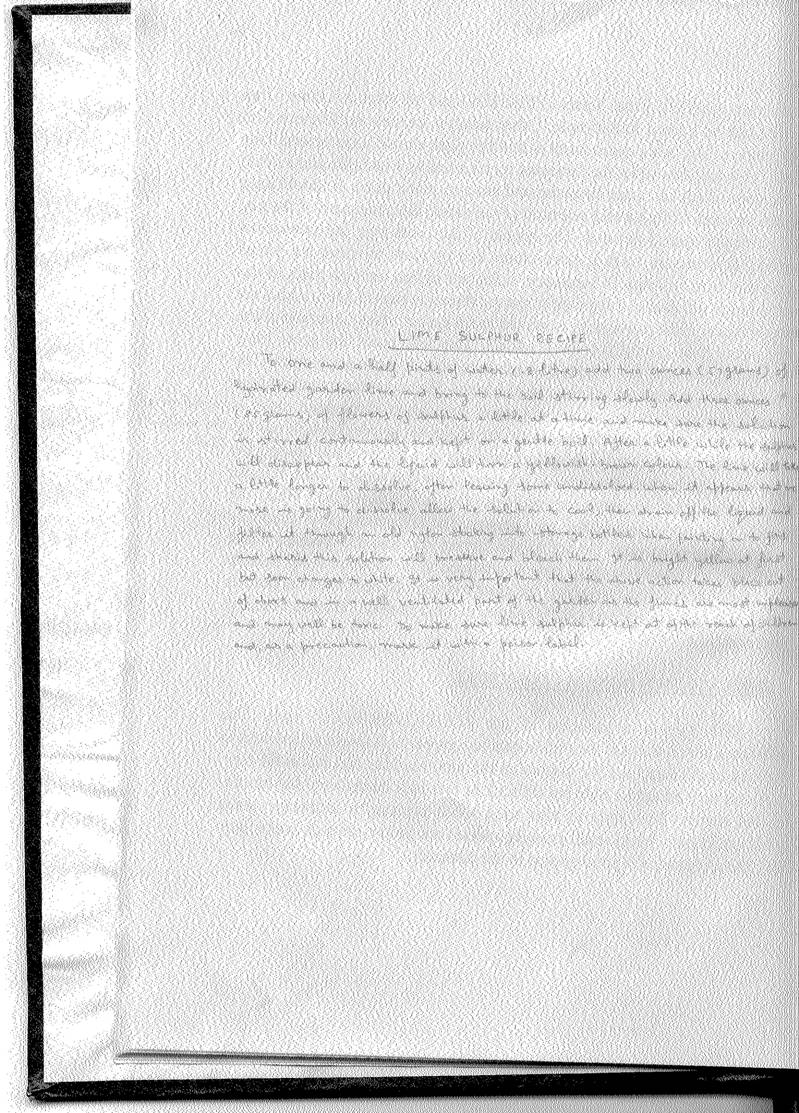 LIME SULPHUR RECIPE
To one and a half pints of water (.8 litre) add two ounces (57 grams) of
hydrated garden lime and bring to the boil stirring slowly. Add three ounces
(85 grams) of flowers of sulphur a little at a time, and make sure the solution
is stirred continuously and kept on a gentle boil. After a little while the sulphur
will disappear and the liquid will turn a yellowish-brown colour. The lime will
a little longer to dissolve, often leaving some undissolved. When it appears that no
more is going to dissolve allow the solution to cool, then drain off the liquid and
filter it through an old nylon stocking into storage bottles. When painting on to
and sharis this solution will preserve and bleach them. It is bright yellow at first
but soon changes to white. It is very important that the above action takes place out
of doors and in a well ventilated part of the garden as the fumes are most
and may well be toxic. To make sure lime sulphur is kept at of the reach of
and, as a precaution, mark it with a poison label.